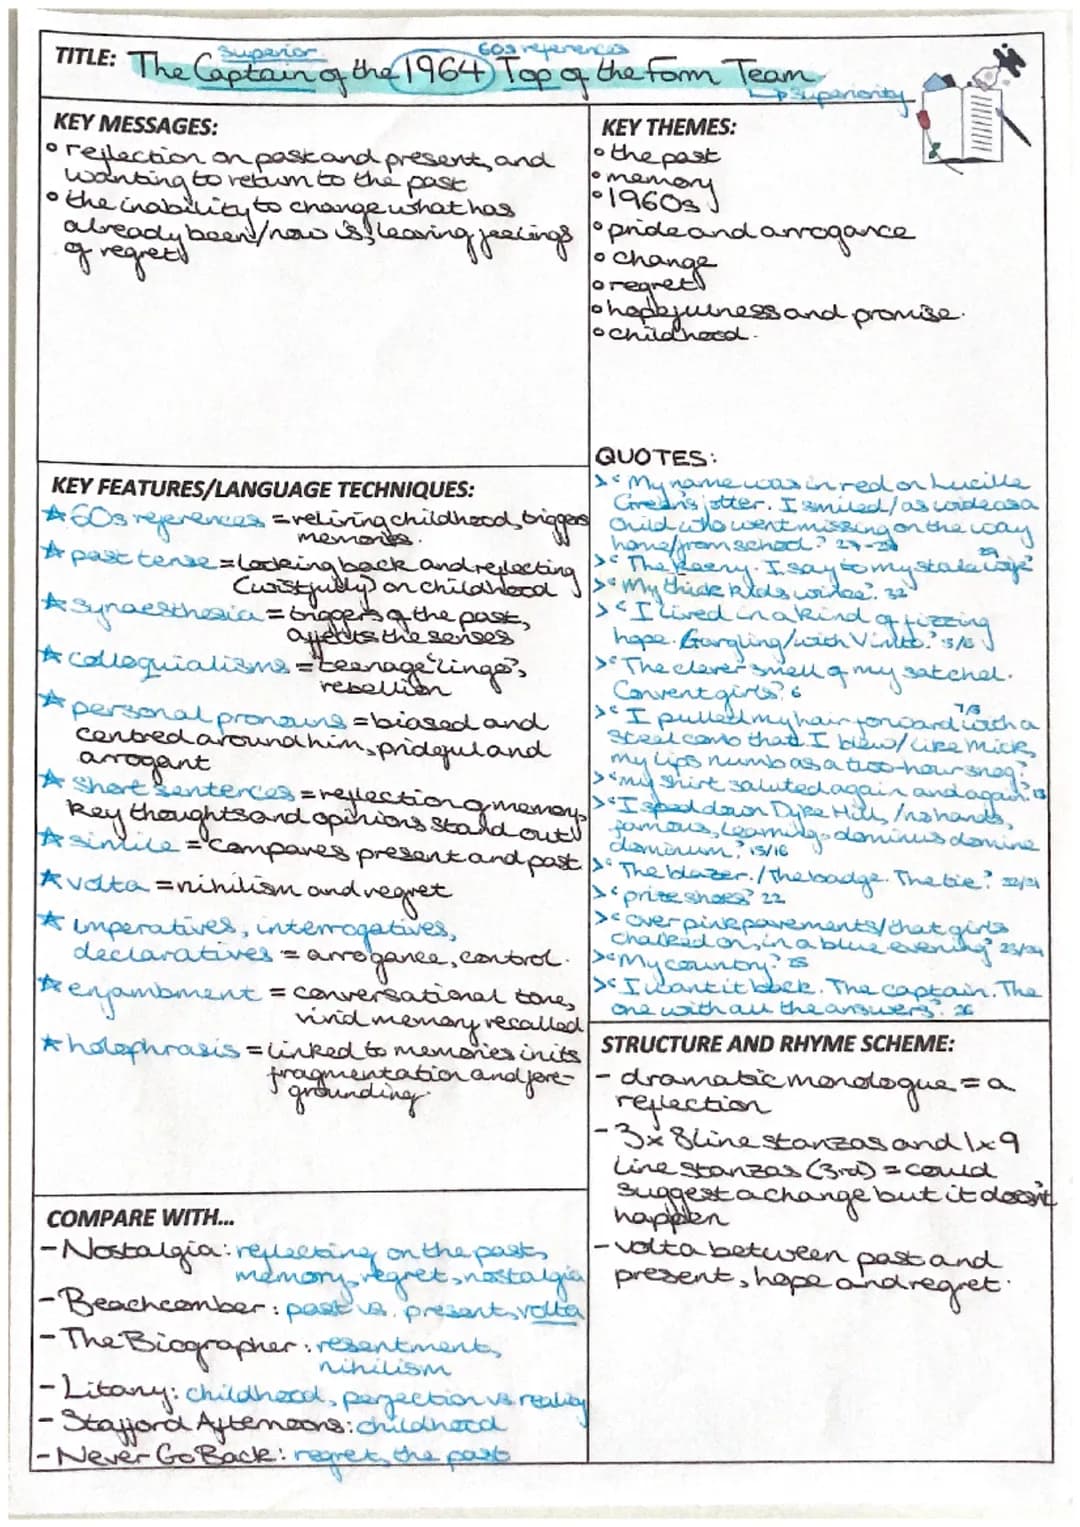 superior
60s references
TITLE: The Captain of the 1964 Top of the Form Team
↳ superiority
KEY MESSAGES:
° reflection on past and present, and
wanting to return to the past
° the inability to change what has
already been/now is, leaving feelings
of regret
KEY THEMES:
° the past
° memory
° 1960s
° pride and arrogance
° change
° regret
° hopefulness and promise.
° childhood.
KEY FEATURES/LANGUAGE TECHNIQUES:
☆ 60s references = reliving childhood, triggers
memories.
☆ past tense = looking back and reflecting
(wistfully) on childhood
☆ synaesthesia = triggers of the past,
affects the senses
☆ colloquialisms = teenage 'lingo',
rebellion
☆ personal pronouns = biased and
centred around him, prideful and
arrogant
☆ short sentences = reflection of memory,
key thoughts and opinions stand out
☆ simile = compares present and past
☆ volta = nihilism and regret
☆ imperatives, interrogatives,
declaratives = arrogance, control.
☆ enjambment = conversational tone,
vivid memory recalled
☆ holophrasis = linked to memories in its
fragmentation and fore-
grounding.
QUOTES:
> 'My name was in red on Lucille
Green's jotter. I smiled/as wide as a
child who went missing on the way
home/from school.' 27-29
> 'The Keeny. I say to my stale wife' 29
> 'My thick kids wince'. 32
> 'I lived in a kind of fizzing
hope. Gargling/with Vimto.' 5/6
> 'The clever smell of my satchel.
Convent girls.' 6
> 'I pulled my hair forward with a 7/8
steel comb that I blew/like Mick,
my lips numb as a two-hour snog.'
> 'my shirt saluted again and again.' 13
> 'I sped down Dyke Hill,/no hands,
famous, learning, dominus domine
dominum.' 15/16
> 'The blazer./The badge. The tie.'
> 'prize shoes' 22
> 'over pink pavements/that girls
chalked on, in a blue evening' 23/24
> 'My country.' 25
> 'I want it back. The captain. The
one with all the answers'. 26
STRUCTURE AND RHYME SCHEME:
- dramatic monologue = a
reflection
- 3x 8 line stanzas and 1x9
line stanzas (3rd) = could
suggest a change but it doesn't
happen
- volta between past and
present, hope and regret.
COMPARE WITH...
- Nostalgia: reflecting on the past,
memory, regret, nostalgia
- Beachcomber: past vs. present, volta
- The Biographer: resentment,
nihilism
- Litany: childhood, perfection vs reality
- Stafford Afternoons: childhood
- Never Go Back: regret, the past